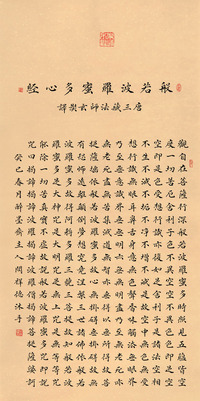 般若波羅蜜多心經
唐三藏法師玄奘譯
觀自在菩薩行深般若波羅蜜多時照見五蘊皆空
度一切苦厄舍利子色不異空空不異色色即是空
空即是色受想行識亦復如是舍利子是諸法空相
不生不滅不垢不淨不增不減是故空中無色無受
想行識無眼耳鼻舌身意無色聲香味觸法無眼界
乃至無意識界無無明亦無無明盡乃至無老死亦
無老死盡無苦集滅道無智亦無得以無所得故菩
提薩埵依般若波羅蜜多故心無掛礙無掛礙故無
有恐怖遠離顛倒夢想究竟涅槃三世諸佛依般若
波羅蜜多故得阿耨多羅三藐三菩提故知般若波
羅蜜多是大神咒是大明咒是無上咒是無等等咒
能除一切苦真實不虛故說般若波羅蜜多咒即說
咒曰揭諦揭諦波羅揭諦波羅僧揭諦菩提薩婆訶
癸巳春月醉墨齋主人閆祥德沐手